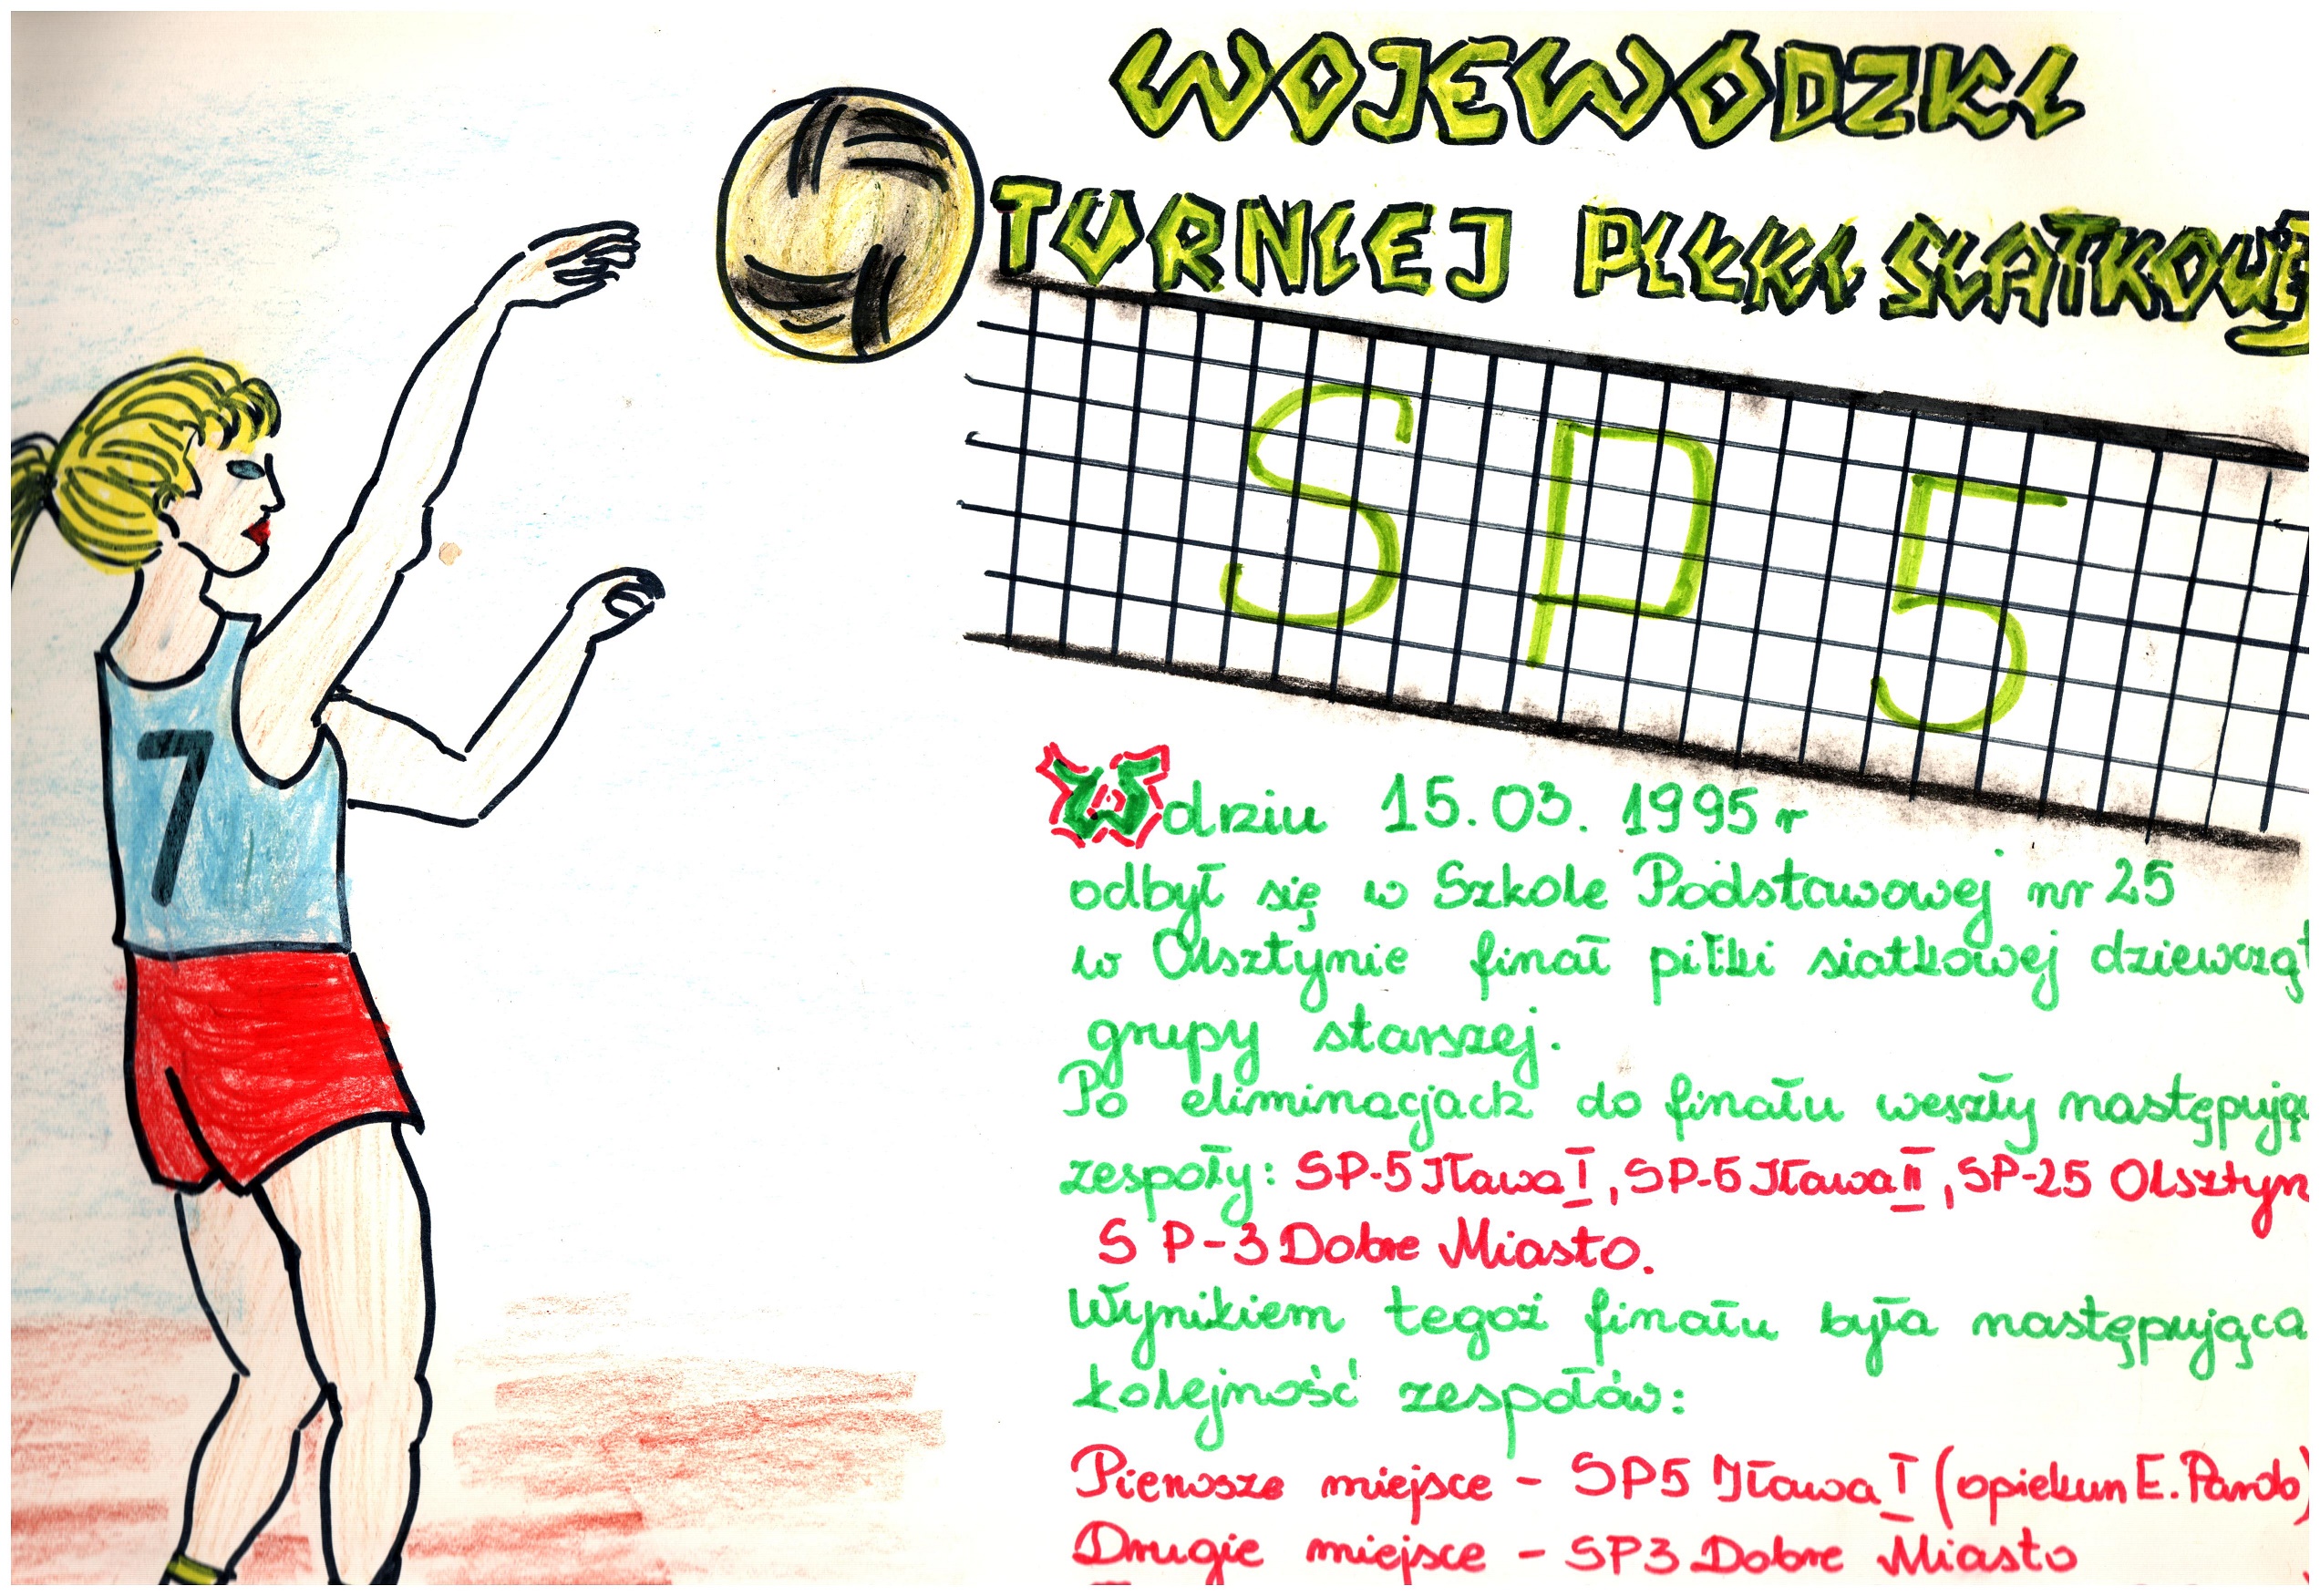 WOJEWÓDZKI
TURNIEJ PIŁKI SIATKOWEJ
SP 5
7
W dniu 15.03.1995 r
odbył się w Szkole Podstawowej nr 25
w Olsztynie finał piłki siatkowej dziewcząt
grupy starszej.
Po eliminacjach do finału weszły następując
zespoły: SP-5 Iława I, SP-5 Iława II, SP-25 Olsztyn
SP-3 Dobre Miasto.
Wynikiem tegoż finału była następująca
kolejność zespołów:
Pierwsze miejsce - SP5 Iława I (opiekun E. Pardo)
Drugie miejsce - SP3 Dobre Miasto